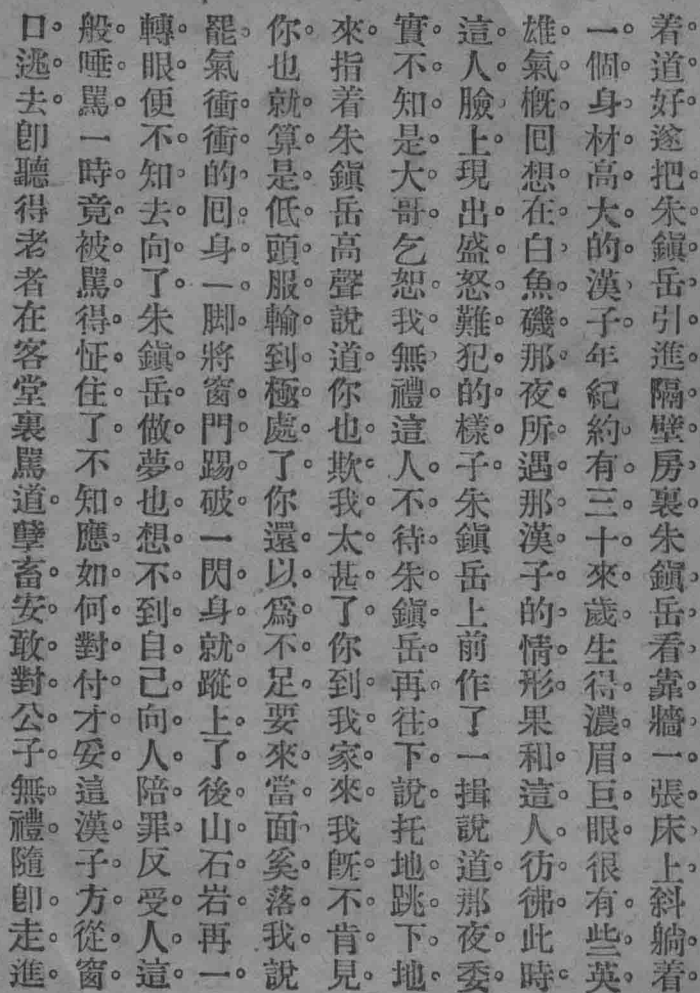 着道好遂把朱鎭岳引進隔壁房裏朱鎭岳看靠牆一張床上斜躺着
一個身材高大的漢子年紀約有三十來歲生得濃眉巨眼很有些英
雄氣概囘想在白魚磯那夜所遇那漢子的情形果和這人彷彿此時
這人臉上現出盛怒難犯的樣子朱鎭岳上前作了一揖說道那夜委
實不知是大哥乞恕我無禮這人不待朱鎭岳再往下說托地跳下地
來指着朱鎭岳高聲說道你也欺我太甚了你到我家來我旣不肯見
你也就算是低頭服輸到極處了你還以爲不足要來當面奚落我說
罷氣衝衝的囘身一脚將窗門踢破一閃身就蹤上了後山石岩再一
轉眼便不知去向了朱鎭岳做夢也想不到自己向人陪罪反受人這
般唾罵一時竟被罵得怔住了不知應如何對付才妥這漢子方從窗
口逃去卽聽得老者在客堂裏罵道孽畜安敢對公子無禮隨卽走進